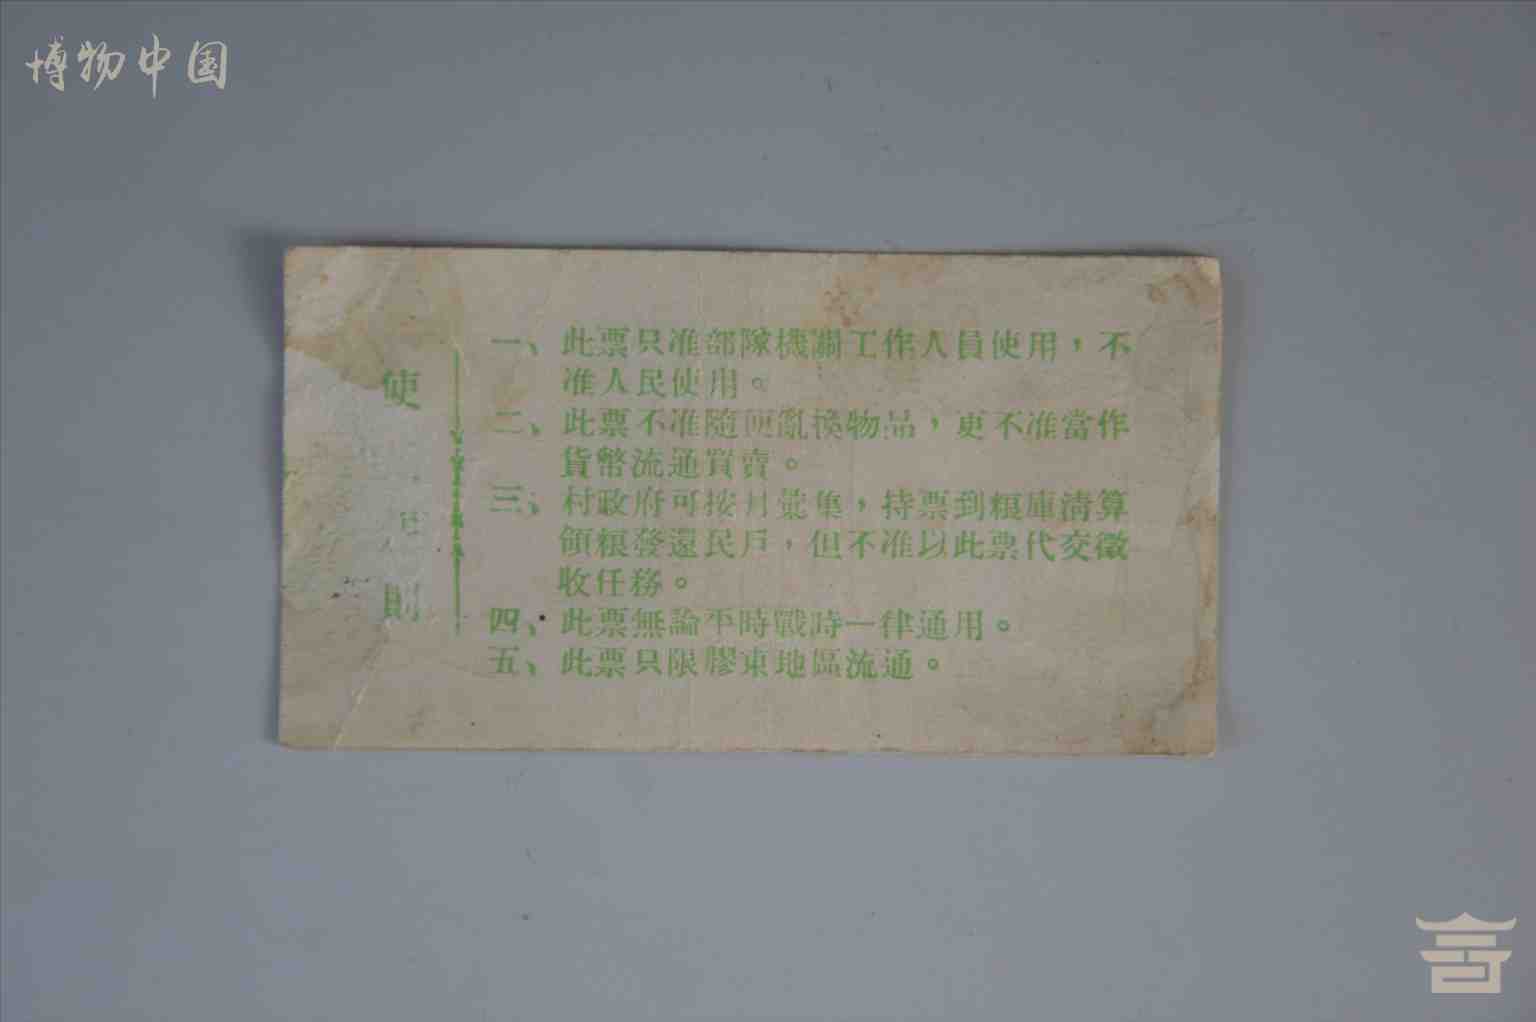 博物中国
使
則
一、此票只准部隊機關工作人員使用，不
准人民使用。
二、此票不准隨便亂換物品，更不准當作
貨幣流通買賣。
三、村政府可按月彙集，持票到粮庫清算
領粮發還民戶，但不准以此票代交徵
收任務。
四、此票無論平時戰時一律通用。
五、此票只限膠東地區流通。